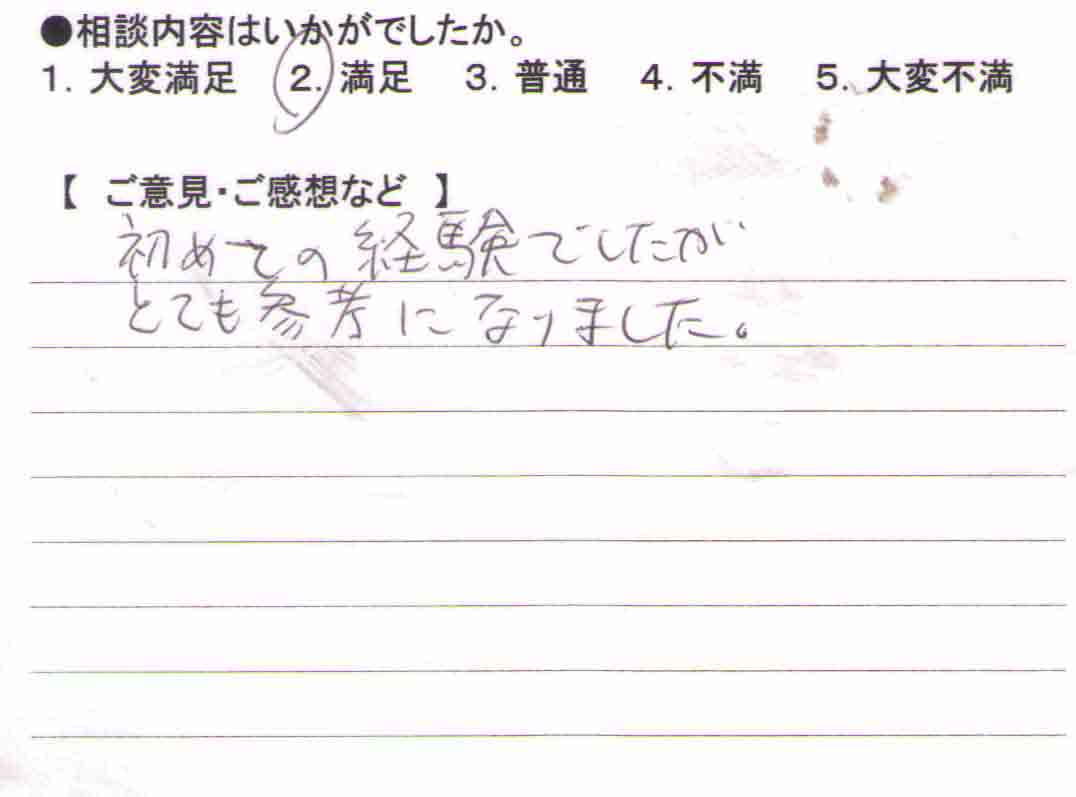 ●相談内容はいかがでしたか。
1. 大変満足 2. 満足 3. 普通 4. 不満 5. 大変不満
【 ご意見・ご感想など 】
初めての経験でしたが
とても参考になりました。